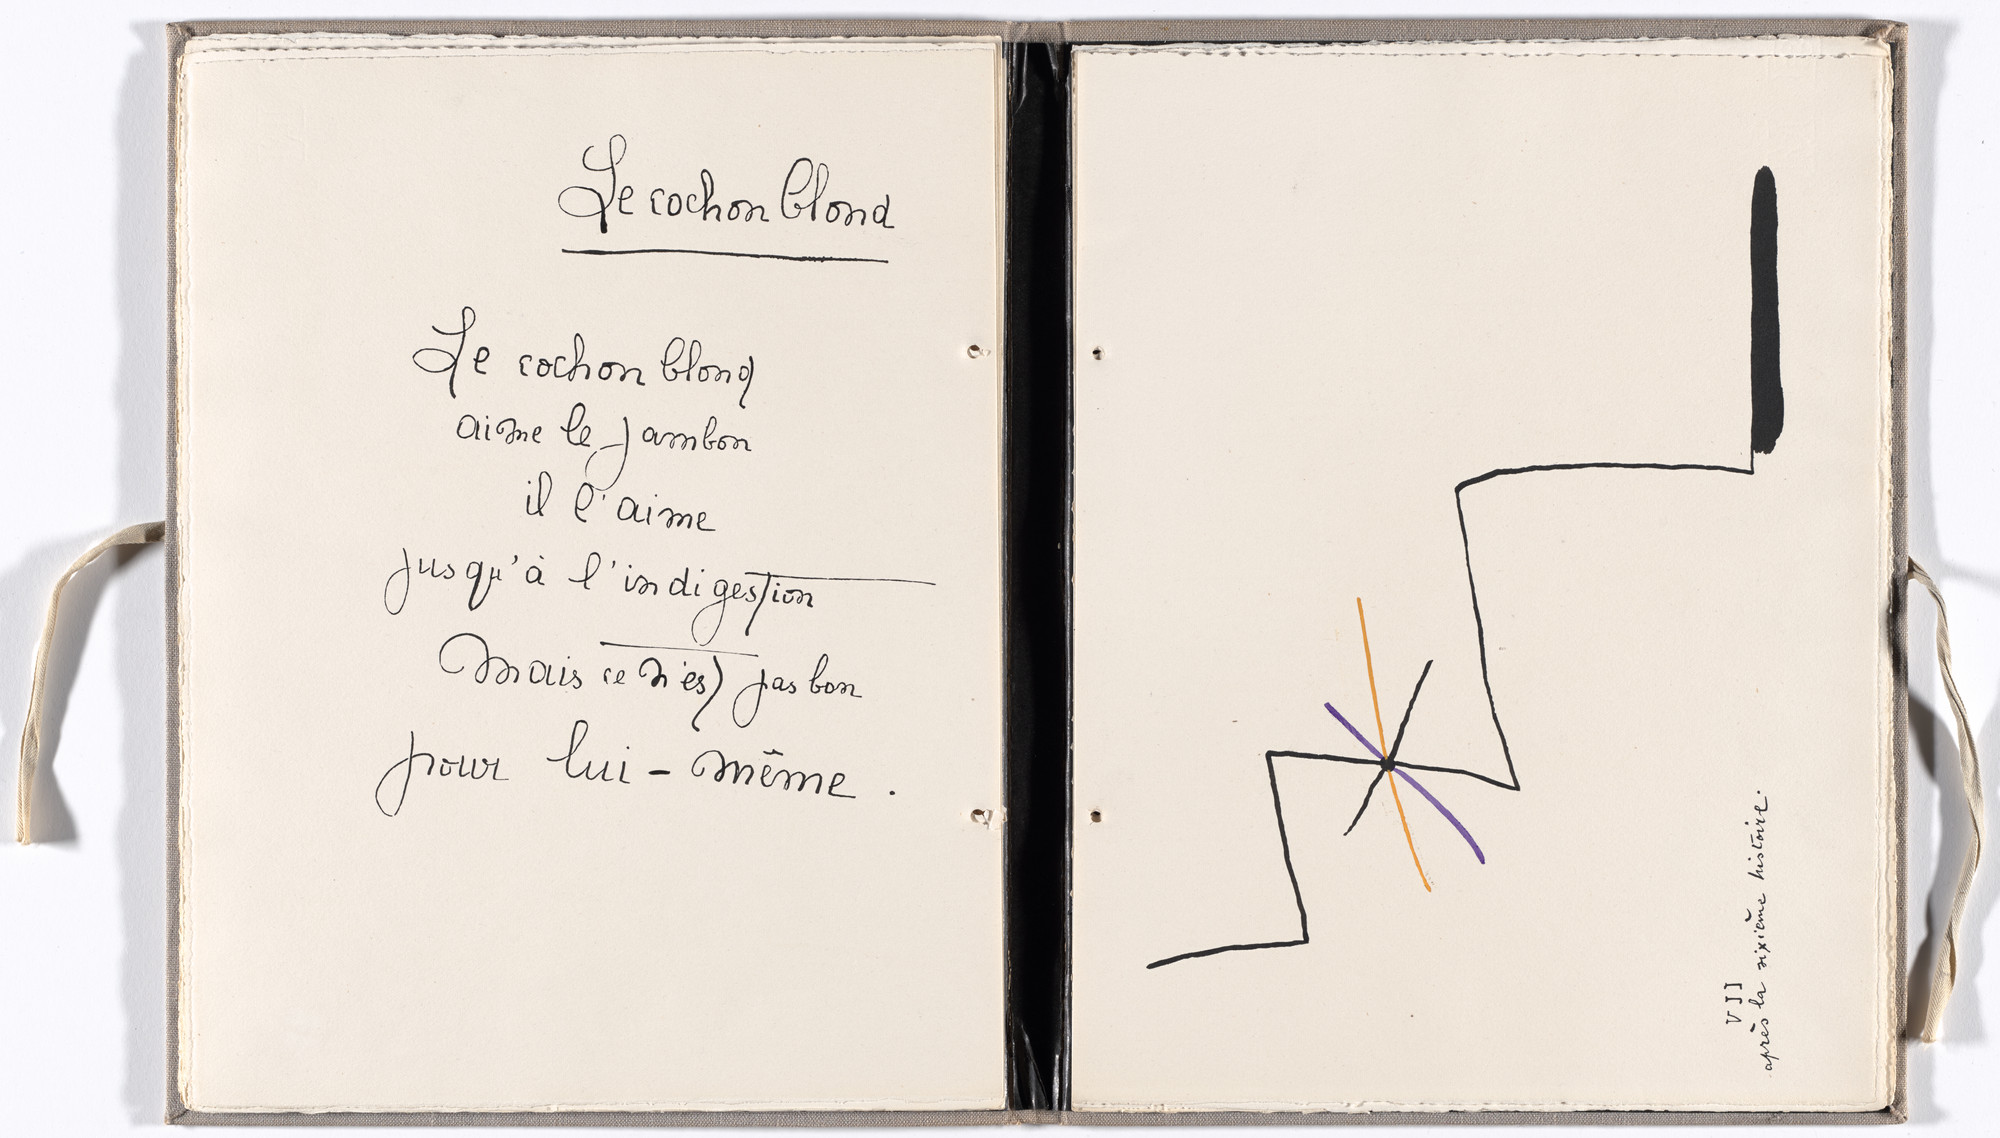 Le cochon blond
Le cochon blond
aime le jambon
il l'aime
jusqu'à l'indigestion
Mais ce n'est pas bon
pour lui-même.
VII
après la sixième histoire.